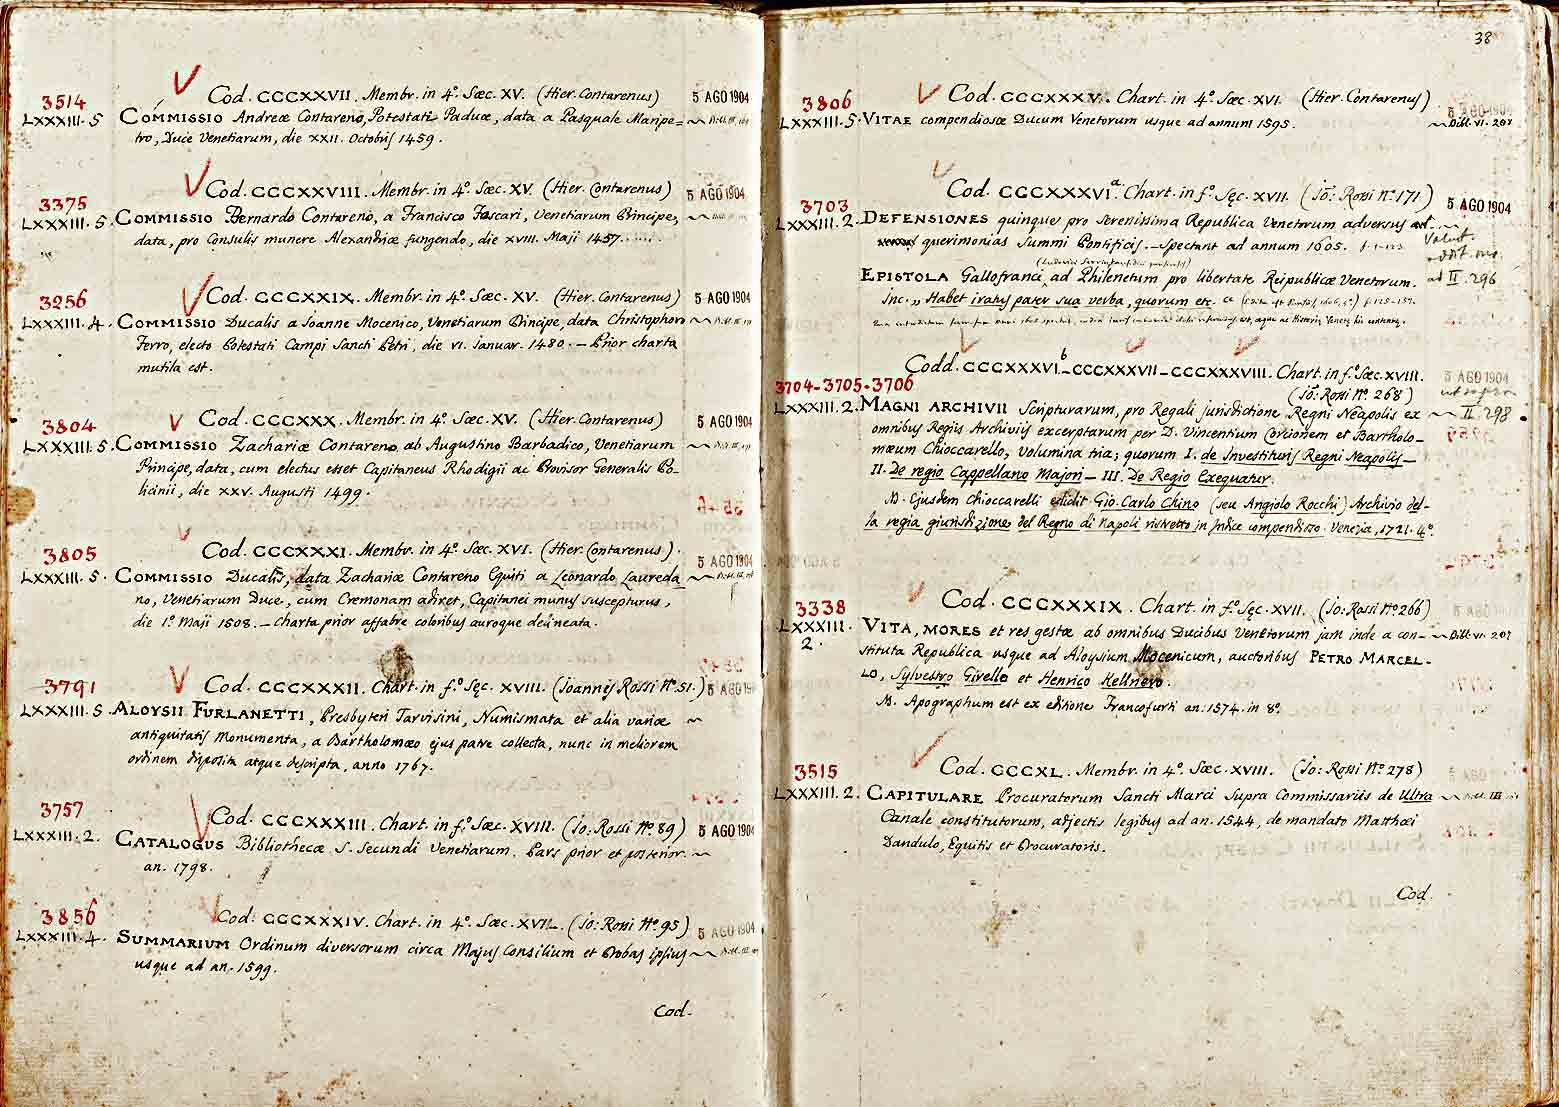 3514 Cod. CCCXXVII. Membr. in 4º. Sæc. XV. (Hier. Contarenus) 5 AGO 1904
LXXXIII. 5 COMMISSIO Andreæ Contareno, Potestati Paduæ, data a Pasquale Maripe=
tro, Duce Venetiarum, die XXII. Octobris 1459.
3375 Cod. CCCXXVIII. Membr. in 4º. Sæc. XV. (Hier. Contarenus) 5 AGO 1904
LXXXIII. 5. COMMISSIO Bernardo Contareno, a Francisco Foscari, Venetiarum Principe,
data, pro Consulis munere Alexandriæ fungendo, die XVIII. Maji 1457.
3256 Cod. CCCXXIX. Membr. in 4º. Sæc. XV. (Hier. Contarenus) 5 AGO 1904
LXXXIII. 4. COMMISSIO Ducalis a Joanne Mocenico, Venetiarum Principe, data Christophoro
Ferro, electo Potestati Campi Sancti Petri, die VI. Januar. 1480. — Prior charta
mutila est.
3804 Cod. CCCXXX. Membr. in 4º. Sæc. XV. (Hier. Contarenus) 5 AGO 1904
LXXXIII. 5. COMMISSIO Zachariæ Contareno ab Augustino Barbadico, Venetiarum
Principe, data, cum electus esset Capitaneus Rhodigii ac Provisor Generalis Po-
licinii, die XXV. Augusti 1499.
3805 Cod. CCCXXXI. Membr. in 4º. Sæc. XVI. (Hier. Contarenus). 5 AGO 1904
LXXXIII. 5. COMMISSIO Ducalis, data Zachariæ Contareno Equiti a Leonardo Laureda
no, Venetiarum Duce, cum Cremonam adiret, Capitanei munus suscepturus,
die 1º. Maji 1508. — Charta prior affabre coloribus auroque delineata.
3791 Cod. CCCXXXII. Chart. in fº. Sęc. XVIII. (Joannis Rossi Nº. 51.) 5 AGO 19
LXXXIII. 5. ALOYSII FURLANETTI, Presbyteri Tarvisini, Numismata et alia variæ
antiquitatis monumenta, a Bartholomæo ejus patre collecta, nunc in meliorem
ordinem disposita atque descripta, anno 1767.
3757 Cod. CCCXXXIII. Chart. in fº. Sæc. XVIII. (Jo: Rossi Nº. 89) 5 AGO 1904
LXXXIII. 2. CATALOGUS Bibliothecæ S. Secundi Venetiarum. Pars prior et posterior.
an. 1798.
3856 Cod. CCCXXXIV. Chart. in 4º. Sæc. XVII. (Jo: Rossi Nº. 95) 5 AGO 1904
LXXXIII. 4. SUMMARIUM Ordinum diversorum circa Majus Consilium et Probas ipsius
usque ad an. 1599.
Cod.
38
3806 Cod. CCCXXXV. Chart. in 4º. Sæc. XVI. (Hier. Contarenus) 5 AGO 1904
LXXXIII. 5. VITAE compendiosæ Ducum Venetorum usque ad annum 1595. Bibl. VI. 207
Cod. CCCXXXVI.a Chart. in fº. Sęc. XVII. (Jo: Rossi nº. 171) 5 AGO 1904
3703
LXXXIII. 2. DEFENSIONES quinque pro Serenissima Republica Venetorum adversus
querimonias Summi Pontificis. — Spectant ad annum 1605.
EPISTOLA Gallofranci, ad Philenetum pro libertate Reipublicæ Venetorum. II. 296
Inc. „ Habet iratus pater sua verba, quorum etc.
Codd. CCCXXXVI.b – CCCXXXVII – CCCXXXVIII. Chart. in fº. Sæc. XVIII. 5 AGO 1904
3704-3705-3706 (Jo: Rossi Nº 268) ut supra
LXXXIII. 2. MAGNI ARCHIVII Scripturarum, pro Regali Jurisdictione Regni Neapolis ex II. 298
omnibus Regiis Archiviis excerptarum per D. Vincentium Corcionem et Bartholo-
mæum Chioccarello, volumina tria; quorum I. de Investituris Regni Neapolis —
II. De regio Cappellano Majori — III. De Regio Exequatur.
N. Ejusdem Chioccarelli edidit Gio. Carlo Chino (seu Angiolo Rocchi) Archivio del-
la regia giurisdizione del Regno di Napoli ristretto in Indice compendioso. Venezia, 1721. 4º.
3338 Cod. CCCXXXIX. Chart. in fº. Sęc. XVII. (Jo: Rossi Nº 266)
LXXXIII. 2. VITA, MORES et res gestæ ab omnibus Ducibus Venetorum jam inde a con- Bibl. VI. 207
stituta Republica usque ad Aloysium Mocenicum, auctoribus PETRO MARCEL-
LO, Sylvestro Girello et Henrico Kellnero.
N. Apographum est ex editione Francofurti an. 1574. in 8º.
3515 Cod. CCCXL. Membr. in 4º. Sæc. XVIII. (Jo: Rossi Nº 278)
LXXXIII. 2. CAPITULARE Procuratorum Sancti Marci Supra Commissariis de Ultra
Canale constitutorum, adjectis legibus ad an. 1544, de mandato Matthæi
Dandulo, Equitis et Procuratoris.
Cod.